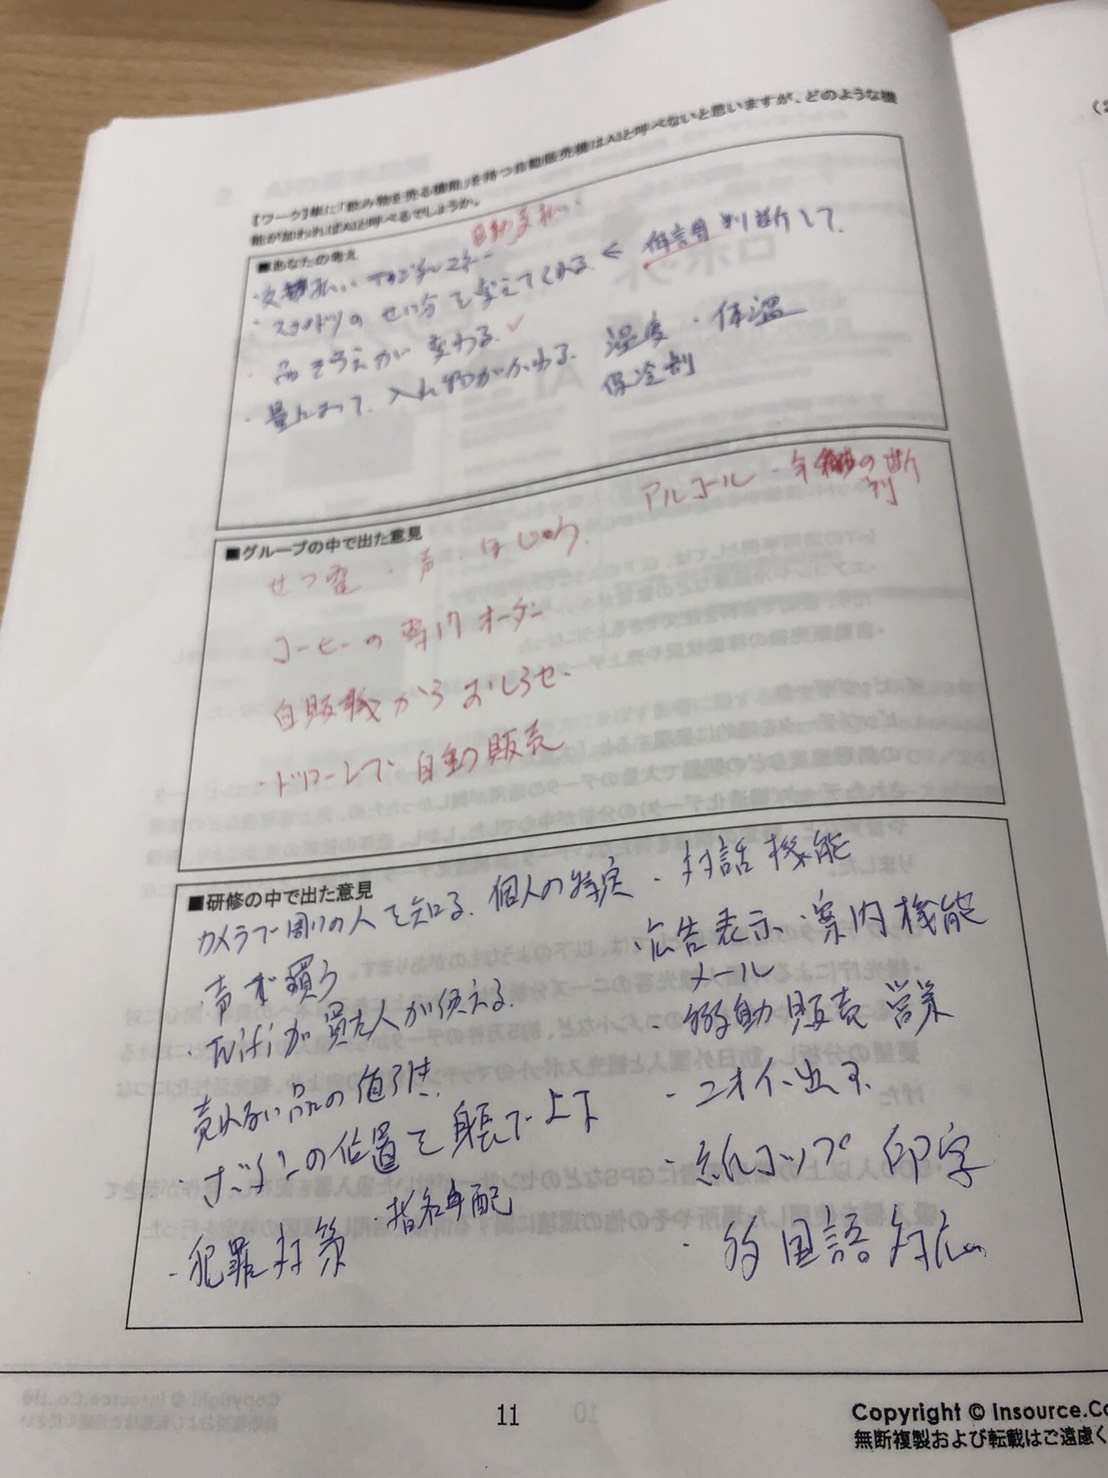 【ワーク】単に「飲み物を売る機能」を持つ自動販売機はAIと呼べないと思いますが、どのような機
能が加わればAIと呼べるでしょうか。
■あなたの考え
自動支払い
・支払い デジタルマネー
・スポドリの せい分を変えてくれる < 体調 判断して、
・品ぞろえが変わる
湿度・体温
・量によって、入れ物がかわる
保冷剤
■グループの中で出た意見
アルコール・年齢の判断
せつ電・声
コーヒーの専門オーダー
自販機からおしらせ
・ドローンで自動販売
■研修の中で出た意見
カメラで周りの人を知る、個人の特定
・声で買う
・Wifiが買った人が使える。
売れない品の値引き
・ボタンの位置を身長で上下
・犯罪対策
・指名手配
・対話機能
・広告表示・案内機能
メール
・移動販売 営業
・ニオイ出す
・紙コップ印字
・多国語対応
11
Copyright © Insource.Co
無断複製および転載はご遠慮く
(2